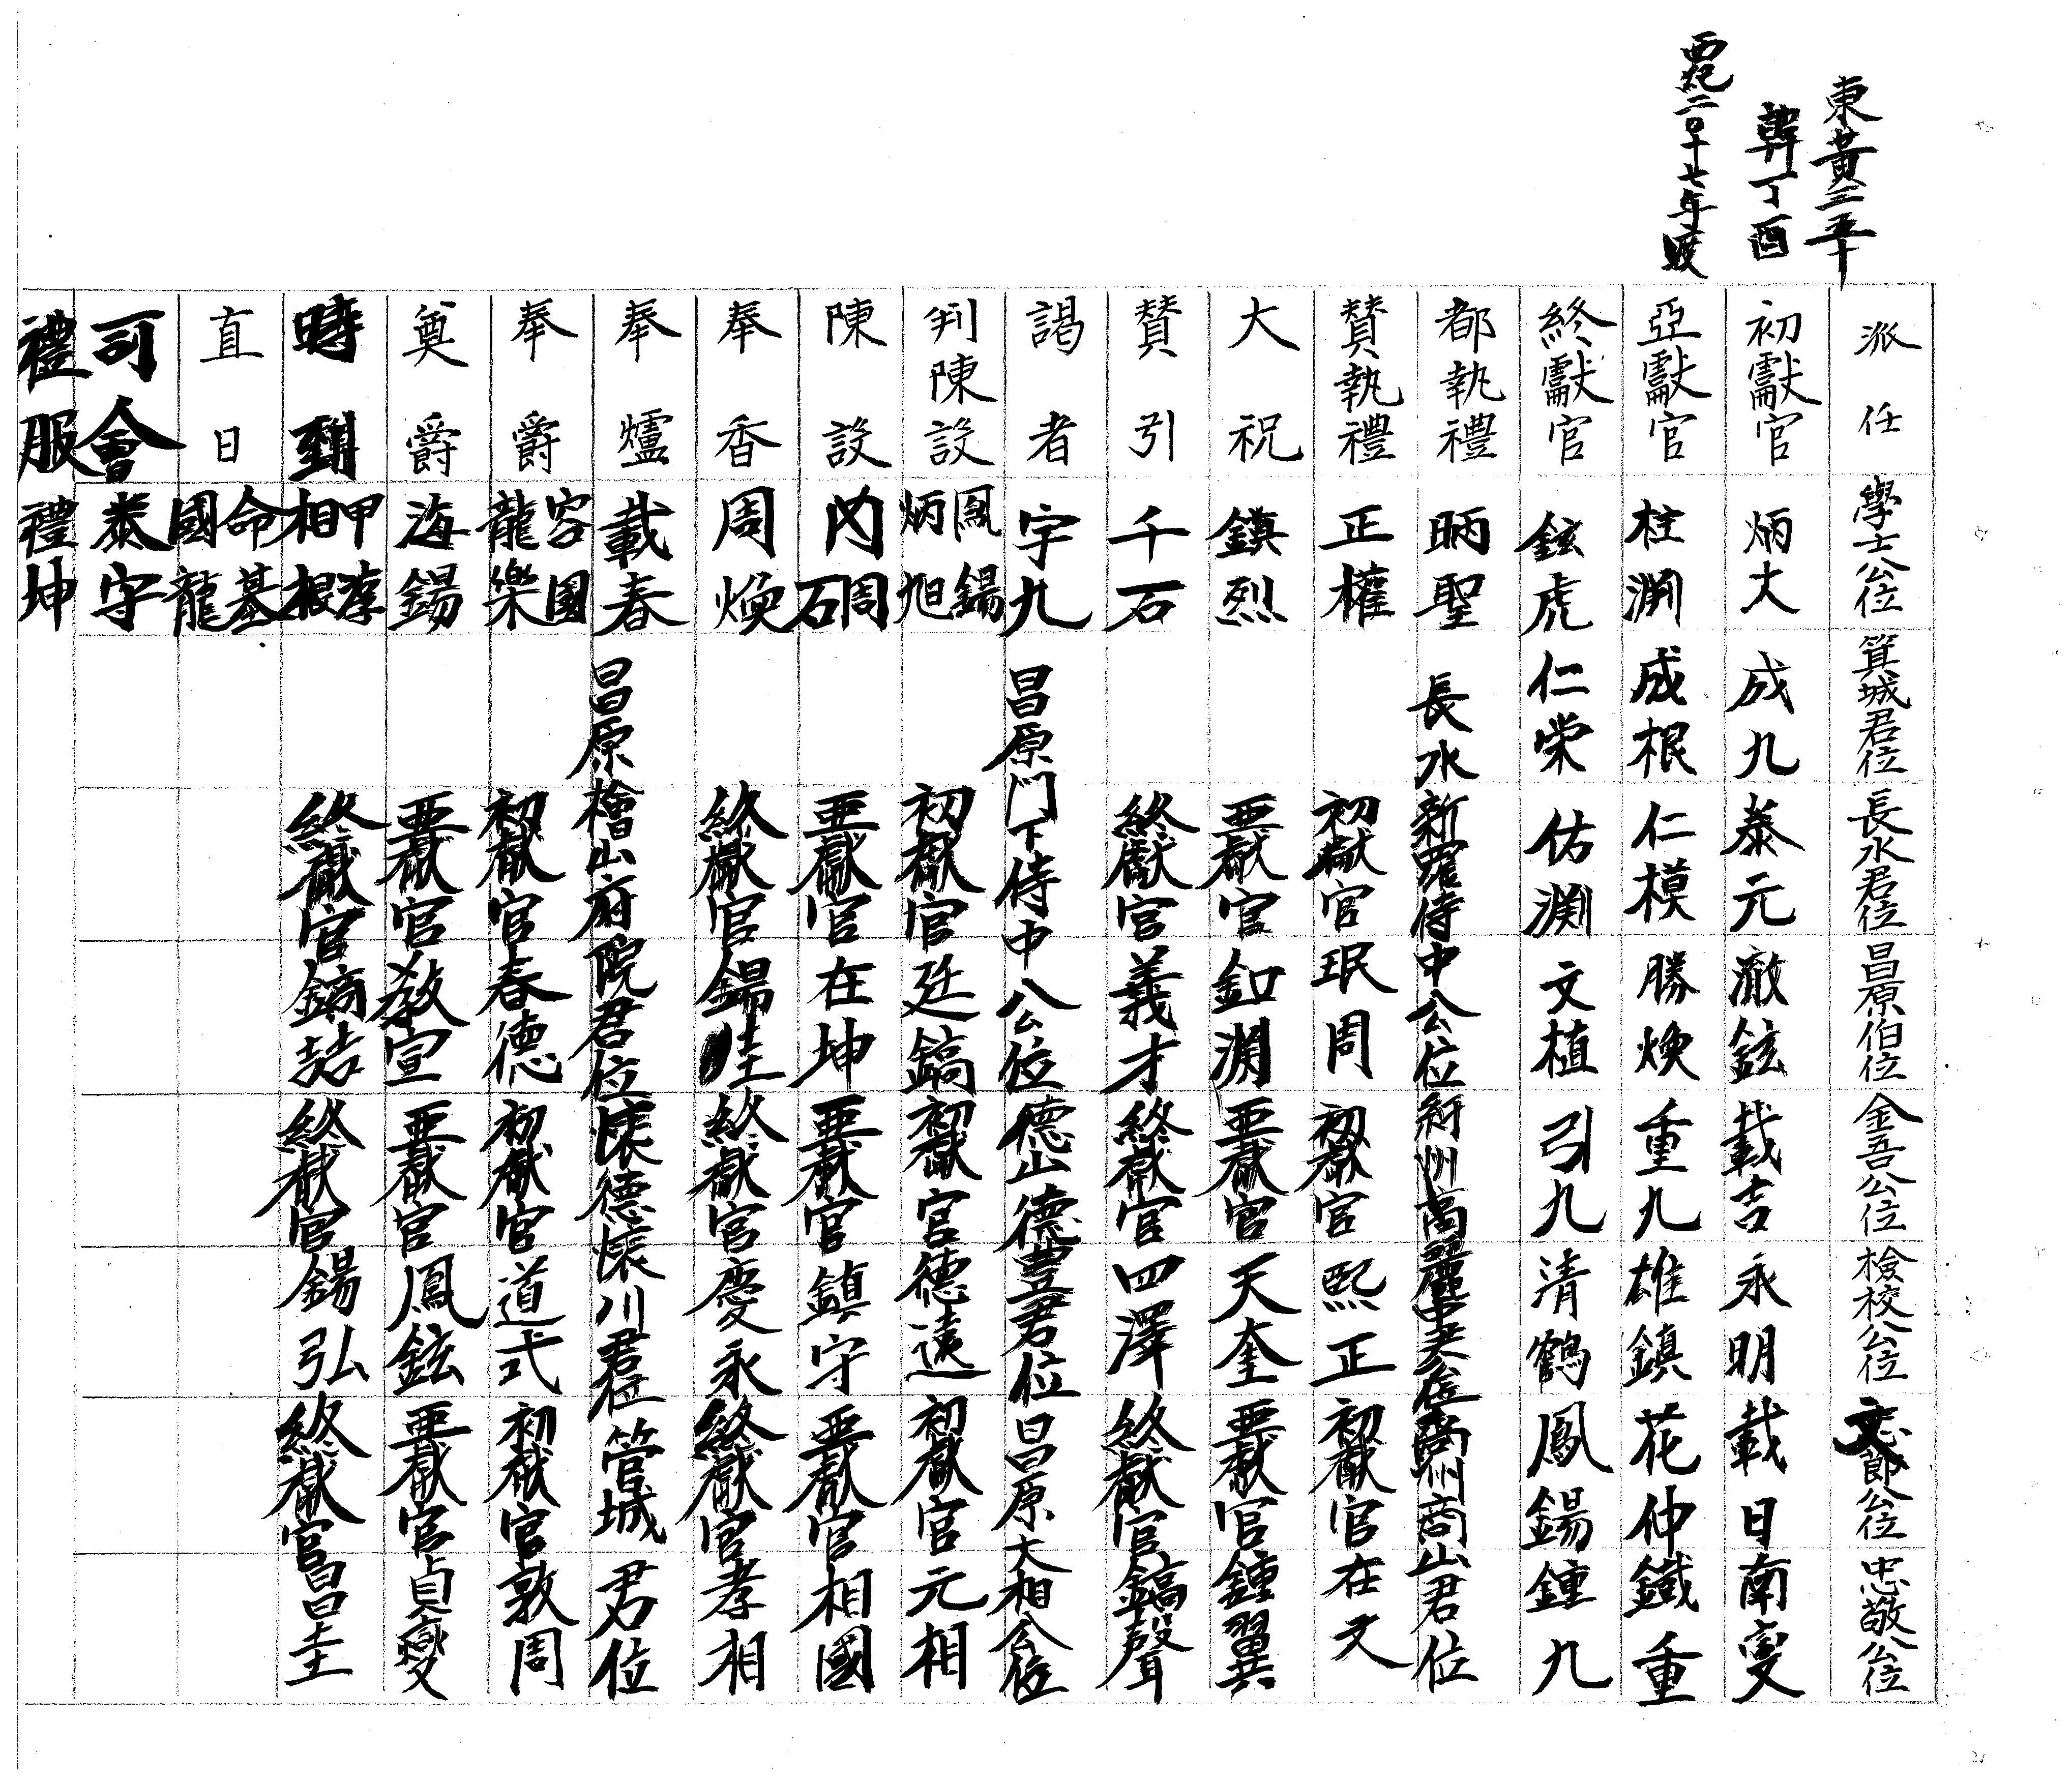 東黃三五十
韓丁酉
西紀二〇十七年度
派任 學士公位 箕城君位 長水君位 昌原伯位 金吾公位 檢校公位 節公位 忠敬公位
初獻官 炳大 成九 泰元 澈鉉 載吉 永明 載日 南燮
亞獻官 柱淵 成根 仁模 勝煥 重九 雄鎮 花仲 鐵重
終獻官 鉉虎 仁栄 佑淵 文植 引九 清鶴 鳳錫 鍾九
都執禮 昞聖 長水 新羅侍中公位 高麗中 公位 商山君位
贊執禮 正權 初獻官 珉周 初獻官 熙正 初獻官 在文
大祝 鎮烈 亞獻官 釦淵 亞獻官 天奎 亞獻官 鍾翼
贊引 千石 終獻官 義才 終獻官 四澤 終獻官 鎬聲
謁者 宇九 昌原門下侍中公位 德山德豊君位 昌原大相公位
判陳設 鳳錫 炳旭 初獻官 廷鎬 初獻官 德遠 初獻官 元相
陳設 內周石 亞獻官 在坤 亞獻官 鎮守 亞獻官 相國
奉香 周煥 終獻官 錫 終獻官 慶永 終獻官 孝相
奉爐 載春 昌原檜山府院君位 懷德懷川君位 管城君位
奉爵 容國 龍樂 初獻官 春德 初獻官 道式 初獻官 敦周
奠爵 海錫 亞獻官 敎宣 亞獻官 鳳鉉 亞獻官 貞燮
時到 甲孝 相根 終獻官 鎬喆 終獻官 錫弘 終獻官 昌圭
直日 命基 國龍
司會 泰守
禮服 禮坤